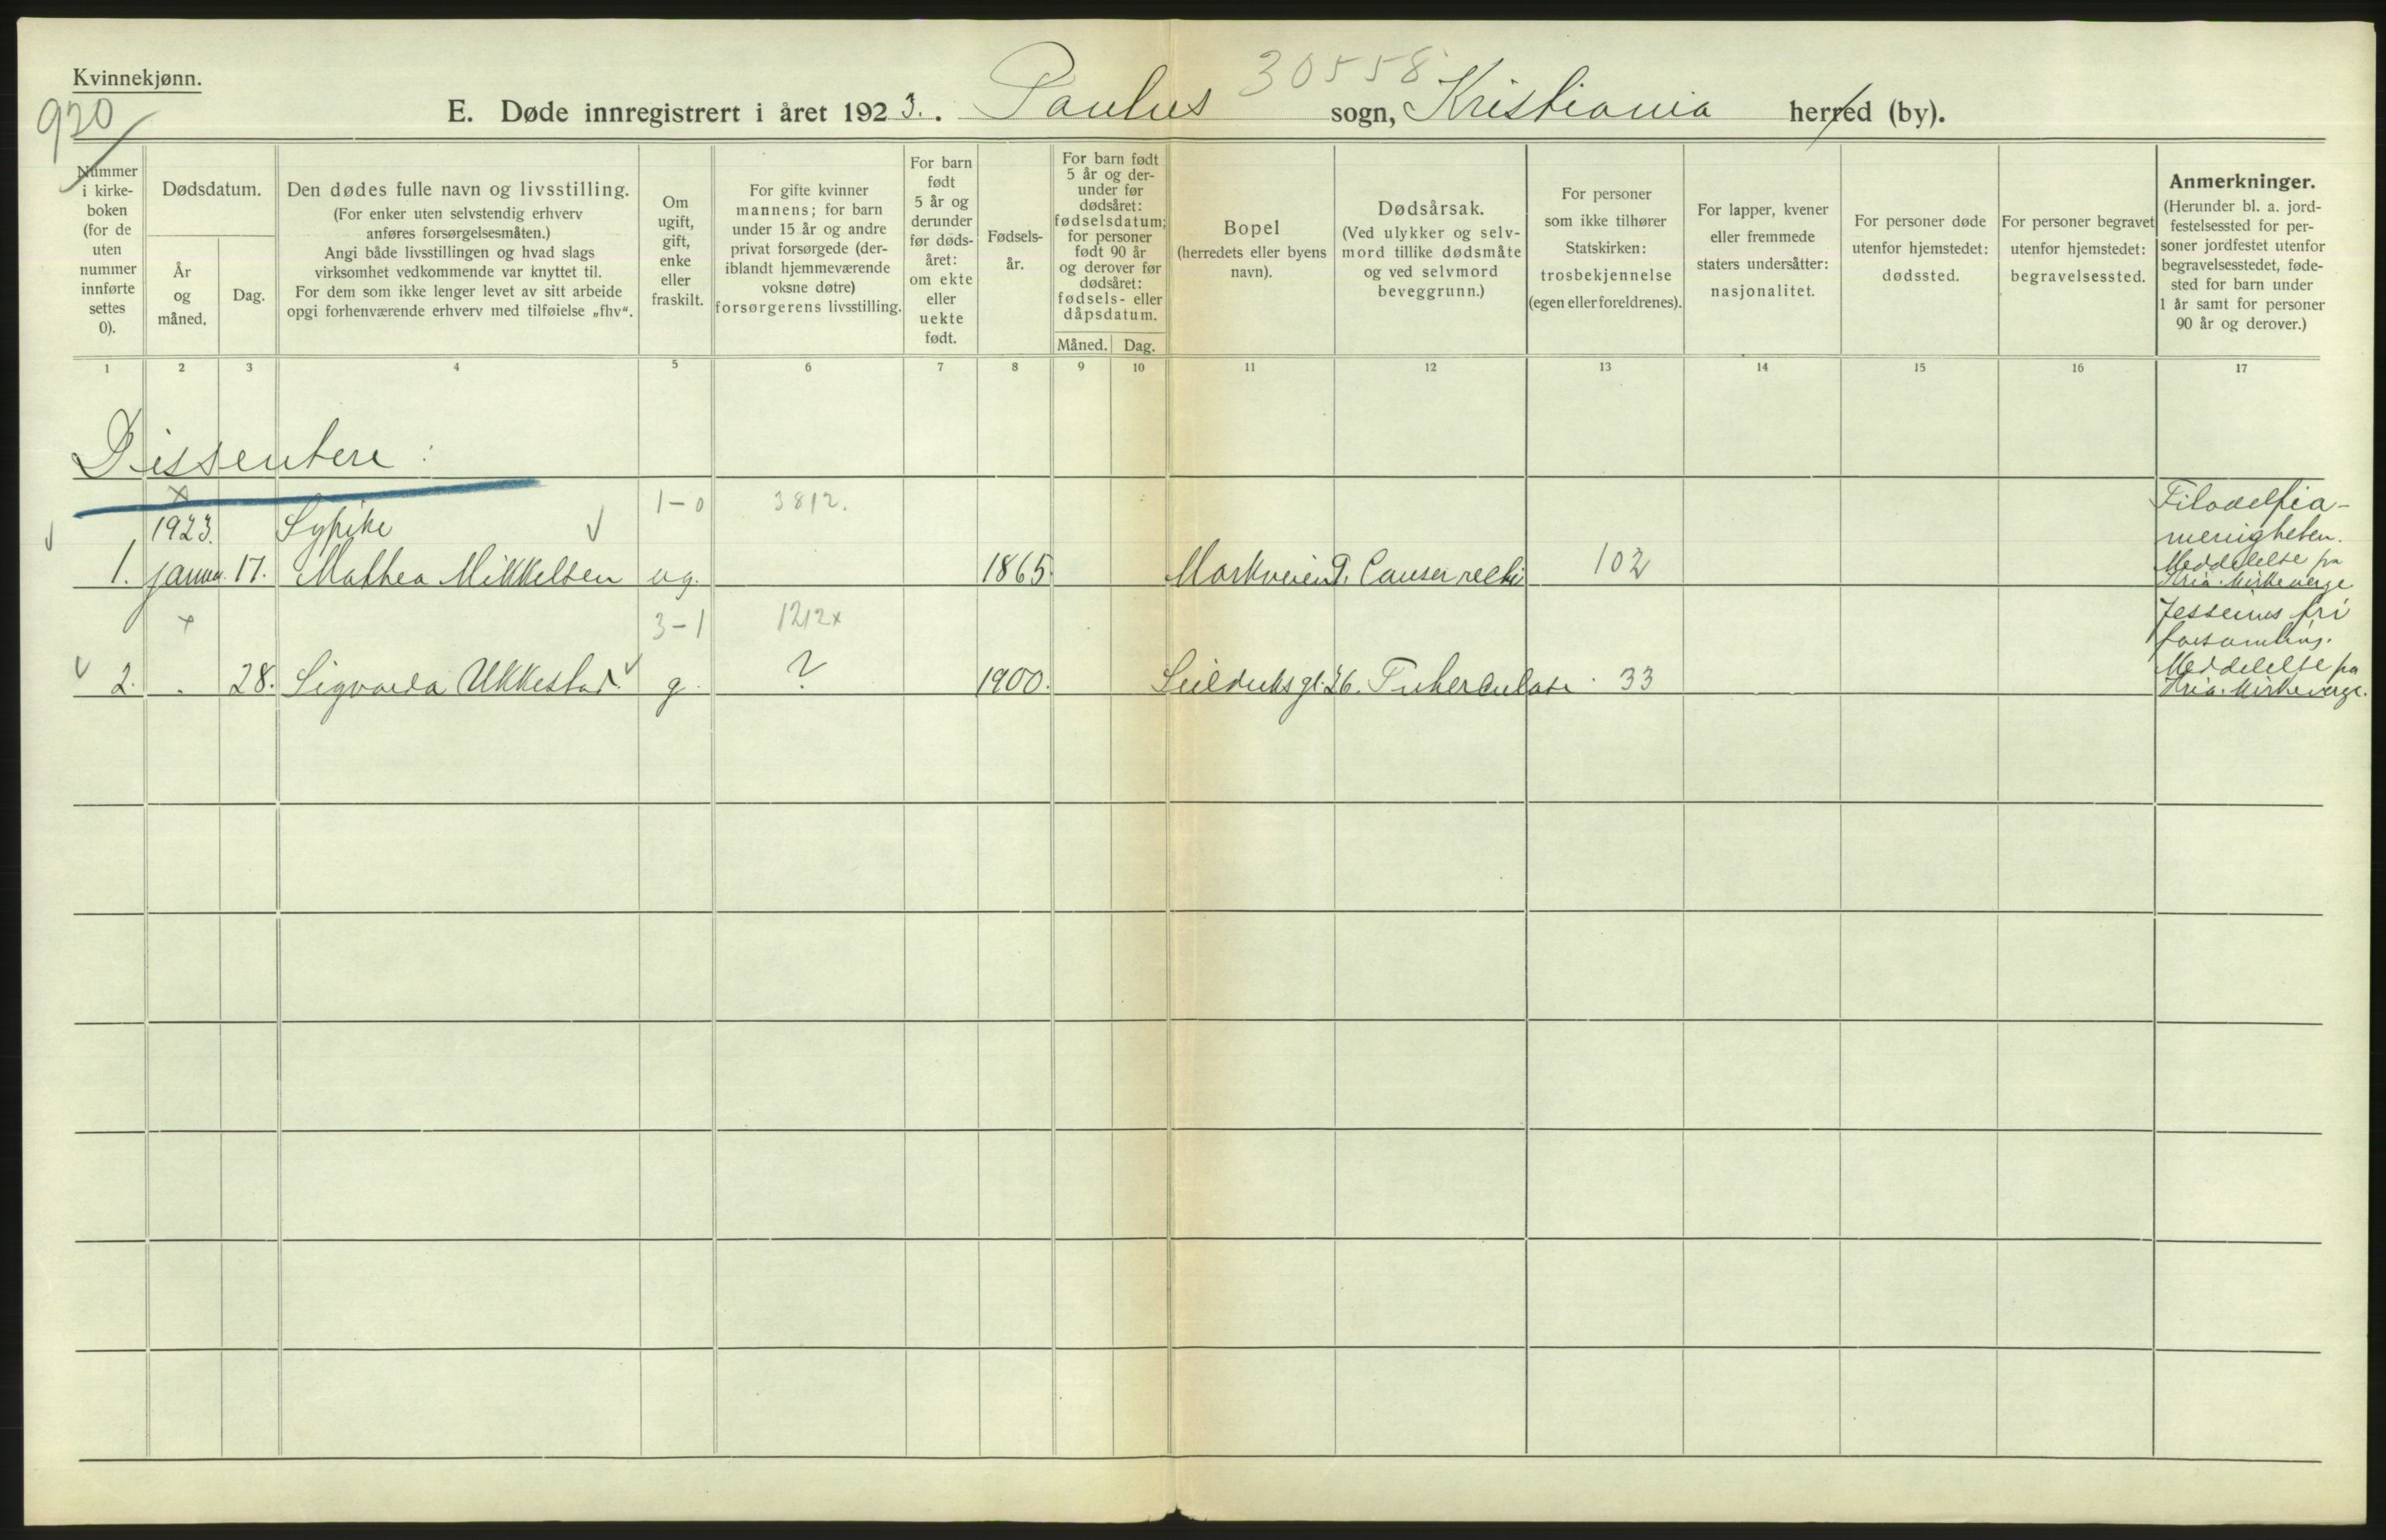 Kvinnekjønn.
920
30558
E. Døde innregistrert i året 1923. Paulus sogn, Kristiania herred (by).
Nummer
i kirke-
boken
(for de
uten
nummer
innførte
settes
0).
Dødsdatum.
År
og
måned.
Dag.
Den dødes fulle navn og livsstilling.
(For enker uten selvstendig erhverv
anføres forsørgelsesmåten.)
Angi både livsstillingen og hvad slags
virksomhet vedkommende var knyttet til.
For dem som ikke lenger levet av sitt arbeide
opgi forhenværende erhverv med tilføielse „fhv“.
Om
ugift,
gift,
enke
eller
fraskilt.
For gifte kvinner
mannens; for barn
under 15 år og andre
privat forsørgede (der-
iblandt hjemmeværende
voksne døtre)
forsørgerens livsstilling.
For barn
født
5 år og
derunder
før døds-
året:
om ekte
eller
uekte
født.
Fødsels-
år.
For barn født
5 år og der-
under før
dødsåret:
fødselsdatum;
for personer
født 90 år
og derover før
dødsåret:
fødsels- eller
dåpsdatum.
Måned. Dag.
Bopel
(herredets eller byens
navn).
Dødsårsak.
(Ved ulykker og selv-
mord tillike dødsmåte
og ved selvmord
beveggrunn.)
For personer
som ikke tilhører
Statskirken:
trosbekjennelse
(egen eller foreldrenes).
For lapper, kvener
eller fremmede
staters undersåtter:
nasjonalitet.
For personer døde
utenfor hjemstedet:
dødssted.
For personer begravet
utenfor hjemstedet:
begravelsessted.
Anmerkninger.
(Herunder bl. a. jord-
festelsessted for per-
soner jordfestet utenfor
begravelsesstedet, føde-
sted for barn under
1 år samt for personer
90 år og derover.)
1 2 3 4 5 6 7 8 9 10 11 12 13 14 15 16 17
Dissentere :
x 1-0 3812. Filadelfia-
1923. Sypike menigheten.
1. januar. 17. Mathea Mikkelsen ug. 1865. Markveien 9. Cancer recti 102 Meddelelse fra
Kria. kirkeverge
x 3-1 1212x Jessens fri
forsamling.
2. . 28. Sigvarda Ukkestad g. ? 1900. Seilduksgt. 26. Tuberculose. 33 Meddelelse fra
Kria. kirkeverge.